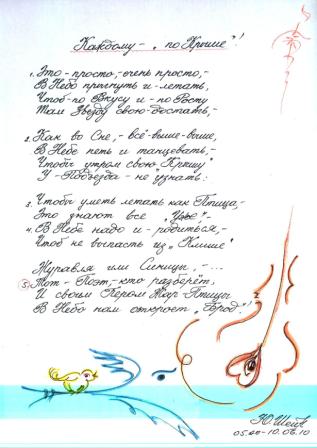 Каждому - „по Крыше"!
1. Это - просто, - очень просто, -
В Небо прыгнуть и - летать,
Чтоб - по Вкусу и - по Росту
Там Звезду свою - достать, -
2. Как во Сне, - всё - выше - выше,
В Небе петь и танцевать, -
Чтобы утром свою „Крышу"
У - Подъезда - не узнать:
3. Чтобы уметь летать как Птица, -
Это знают все „Уже" -
4. В Небе надо и - родиться, -
Чтоб не выпасть из „Клише"
Журавля или Синицы, - ...
5. Тот - Поэт, - кто разберёт,
И своим Пером Жар Птицы
В Небо нам откроет, „Брод"!
Ю. Шейк
05.00 - 10.06.10